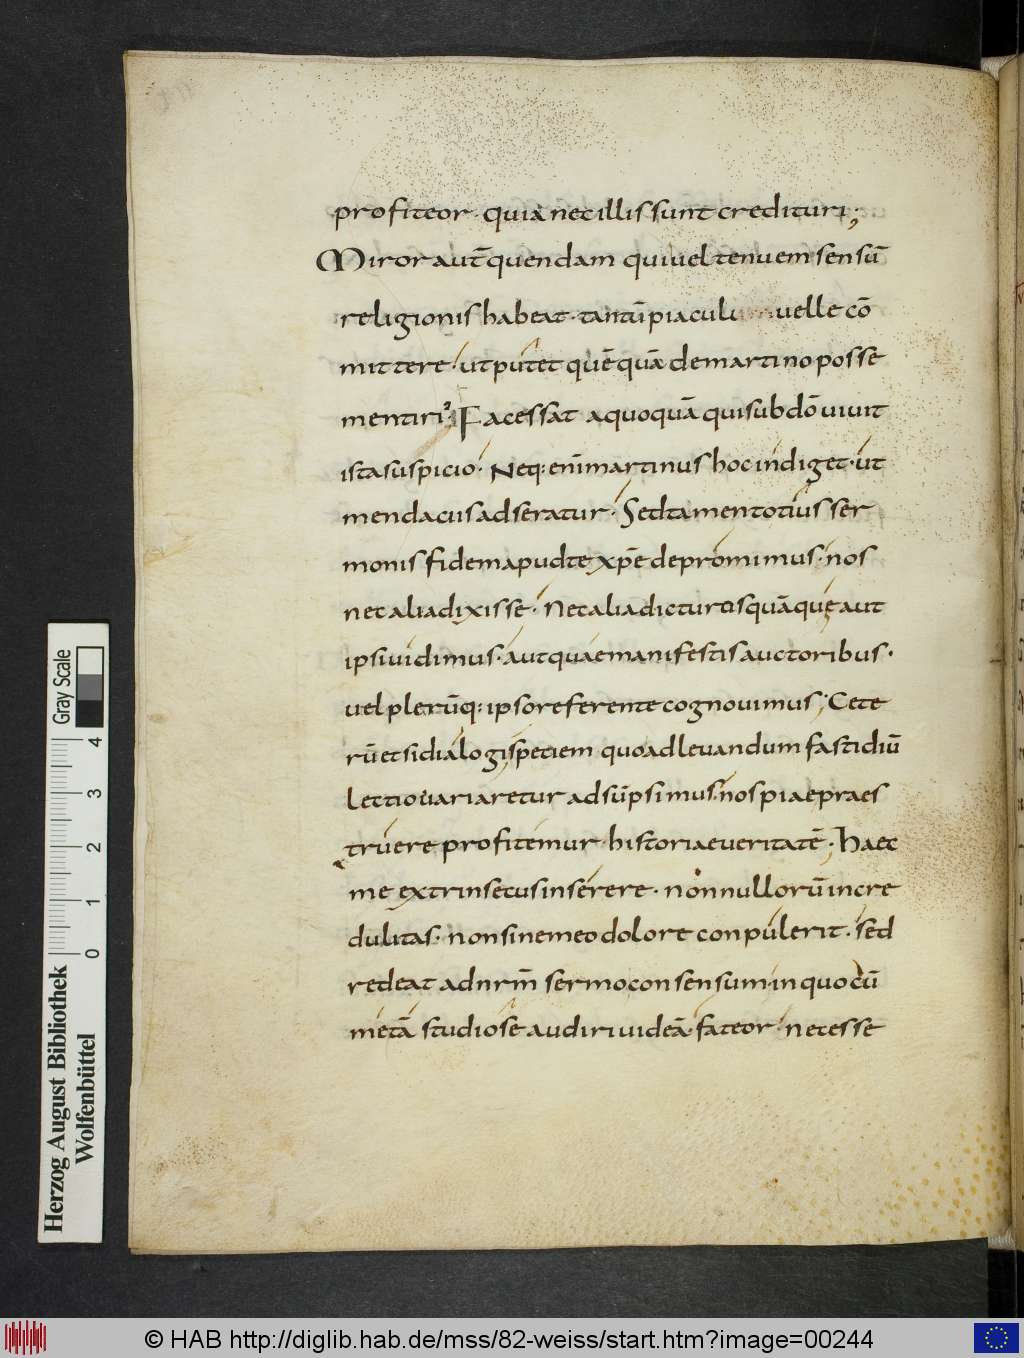 profiteor · quia nec illis sunt credituri ;
Miror autē quendam qui uel tenuem sensū
religionis habeat · tantū piaculu uelle cō
mittere · ut putet quē quā de martino posse
mentiri? Facessat a quoquā qui sub dō uiuit
ista suspicio · Neq: enī martinus hoc indiget · ut
mendacus adseratur · Sed tamen totius ser
monis fidem apud te xp̄e depromimus · nos
nec alia dixisse · Nec alia dicturos quā quę aut
ipsi uidimus · aut quae manifestis auctoribus ·
uel plerūq: ipso referente cognouimus ; Cete
rū etsi dialogi speciem quo ad leuandum fastidiū
lectio uariaretur adsūpsimus · nos piae praes
truere profitemur · historiae ueritatē · Haec
me extrinsecus inserere · non nullorū incre
dulitas · non sine meo dolore conpulerit · sed
redeat ad nr̄m sermo consensum · in quo cū
me tā studiose audiri uideā · fateor · necesse
Gray Scale
4
3
2
1
0
Herzog August Bibliothek
Wolfenbüttel
© HAB http://diglib.hab.de/mss/82-weiss/start.htm?image=00244